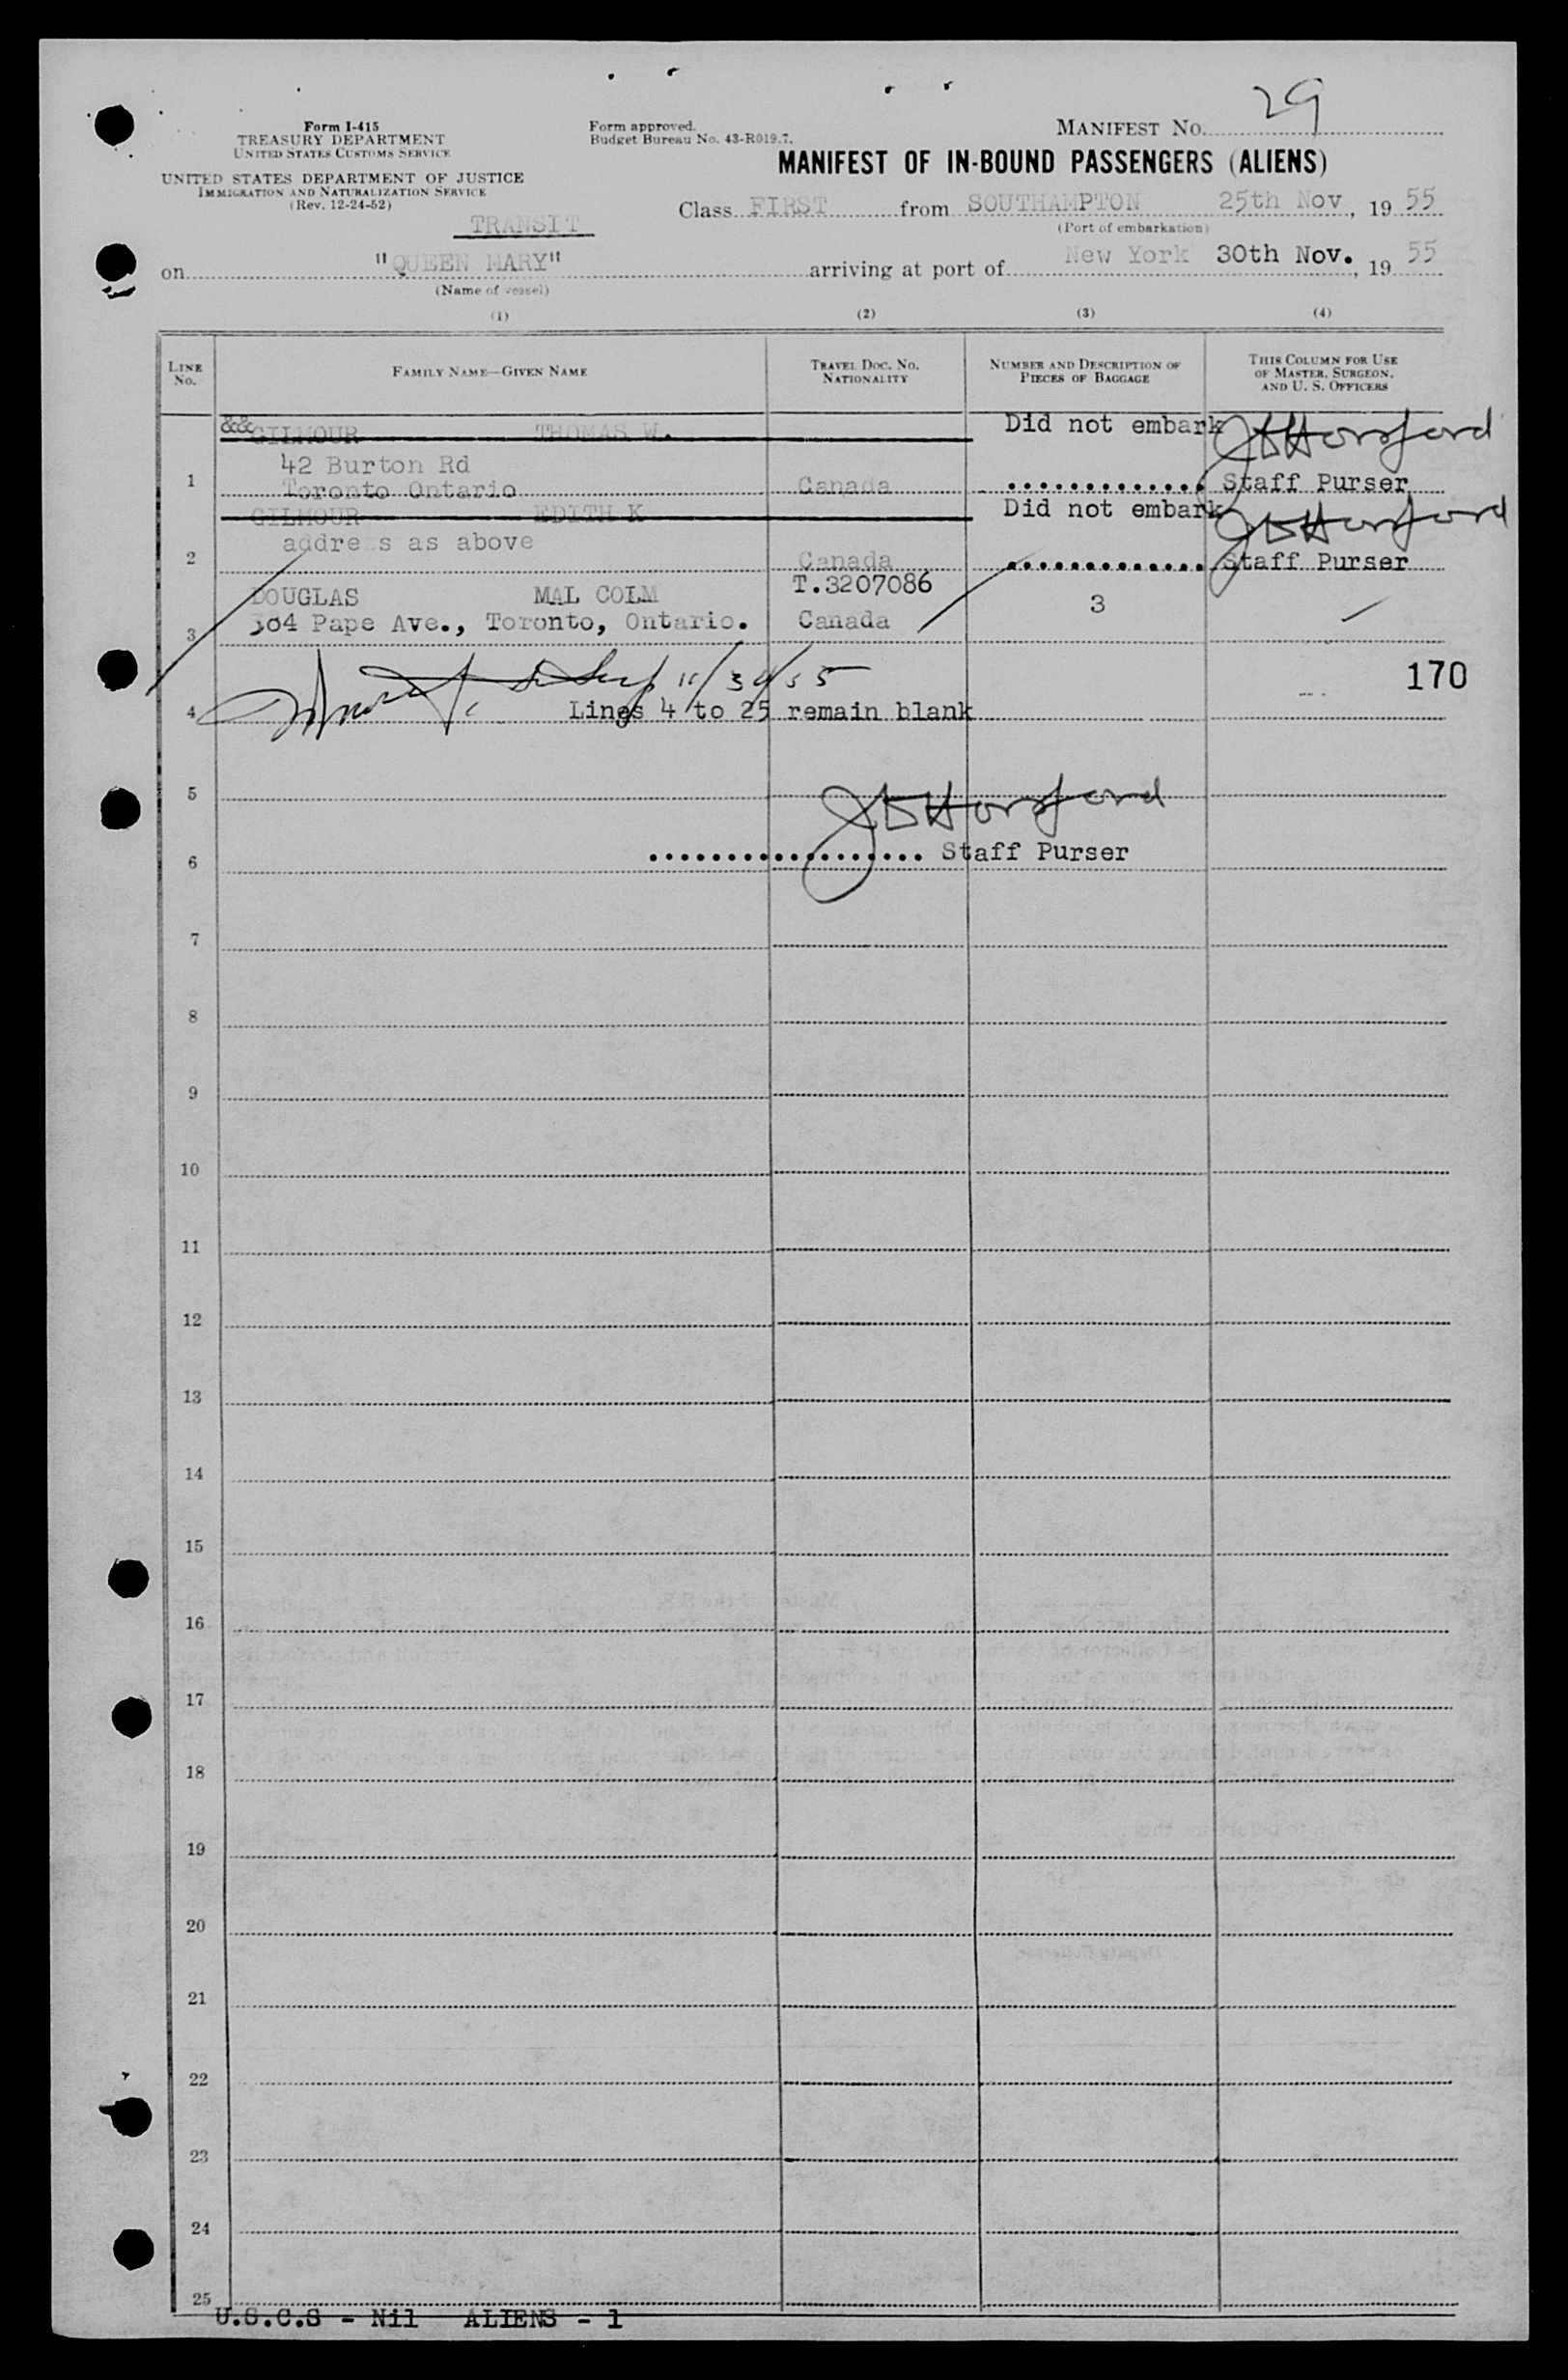 29
Form I-415
TREASURY DEPARTMENT
UNITED STATES CUSTOMS SERVICE
UNITED STATES DEPARTMENT OF JUSTICE
IMMIGRATION AND NATURALIZATION SERVICE
(Rev. 12-24-52)
Form approved.
Budget Bureau No. 43-R019.7.
MANIFEST NO.
MANIFEST OF IN-BOUND PASSENGERS (ALIENS)
TRANSIT
Class FIRST from SOUTHAMPTON 25th Nov, 19 55
(Port of embarkation)
on "QUEEN MARY" arriving at port of New York 30th Nov., 19 55
(Name of vessel)
(1) (2) (3) (4)
LINE No.
FAMILY NAME—GIVEN NAME
TRAVEL DOC. NO. NATIONALITY
NUMBER AND DESCRIPTION OF PIECES OF BAGGAGE
THIS COLUMN FOR USE OF MASTER, SURGEON, AND U. S. OFFICERS
&&GILMOUR THOMAS W. Did not embark JDHorsford
42 Burton Rd
1 Toronto Ontario Canada Staff Purser
GILMOUR EDITH K Did not embark JDHorsford
addre s as above
2 Canada Staff Purser
DOUGLAS MAL COLM T.3207086 3
3 304 Pape Ave., Toronto, Ontario. Canada
11/30/55 170
4 Lines 4 to 25 remain blank
5 JDHorsford
6 Staff Purser
7
8
9
10
11
12
13
14
15
16
17
18
19
20
21
22
23
24
25
U.S.C.S - Nil ALIENS - 1